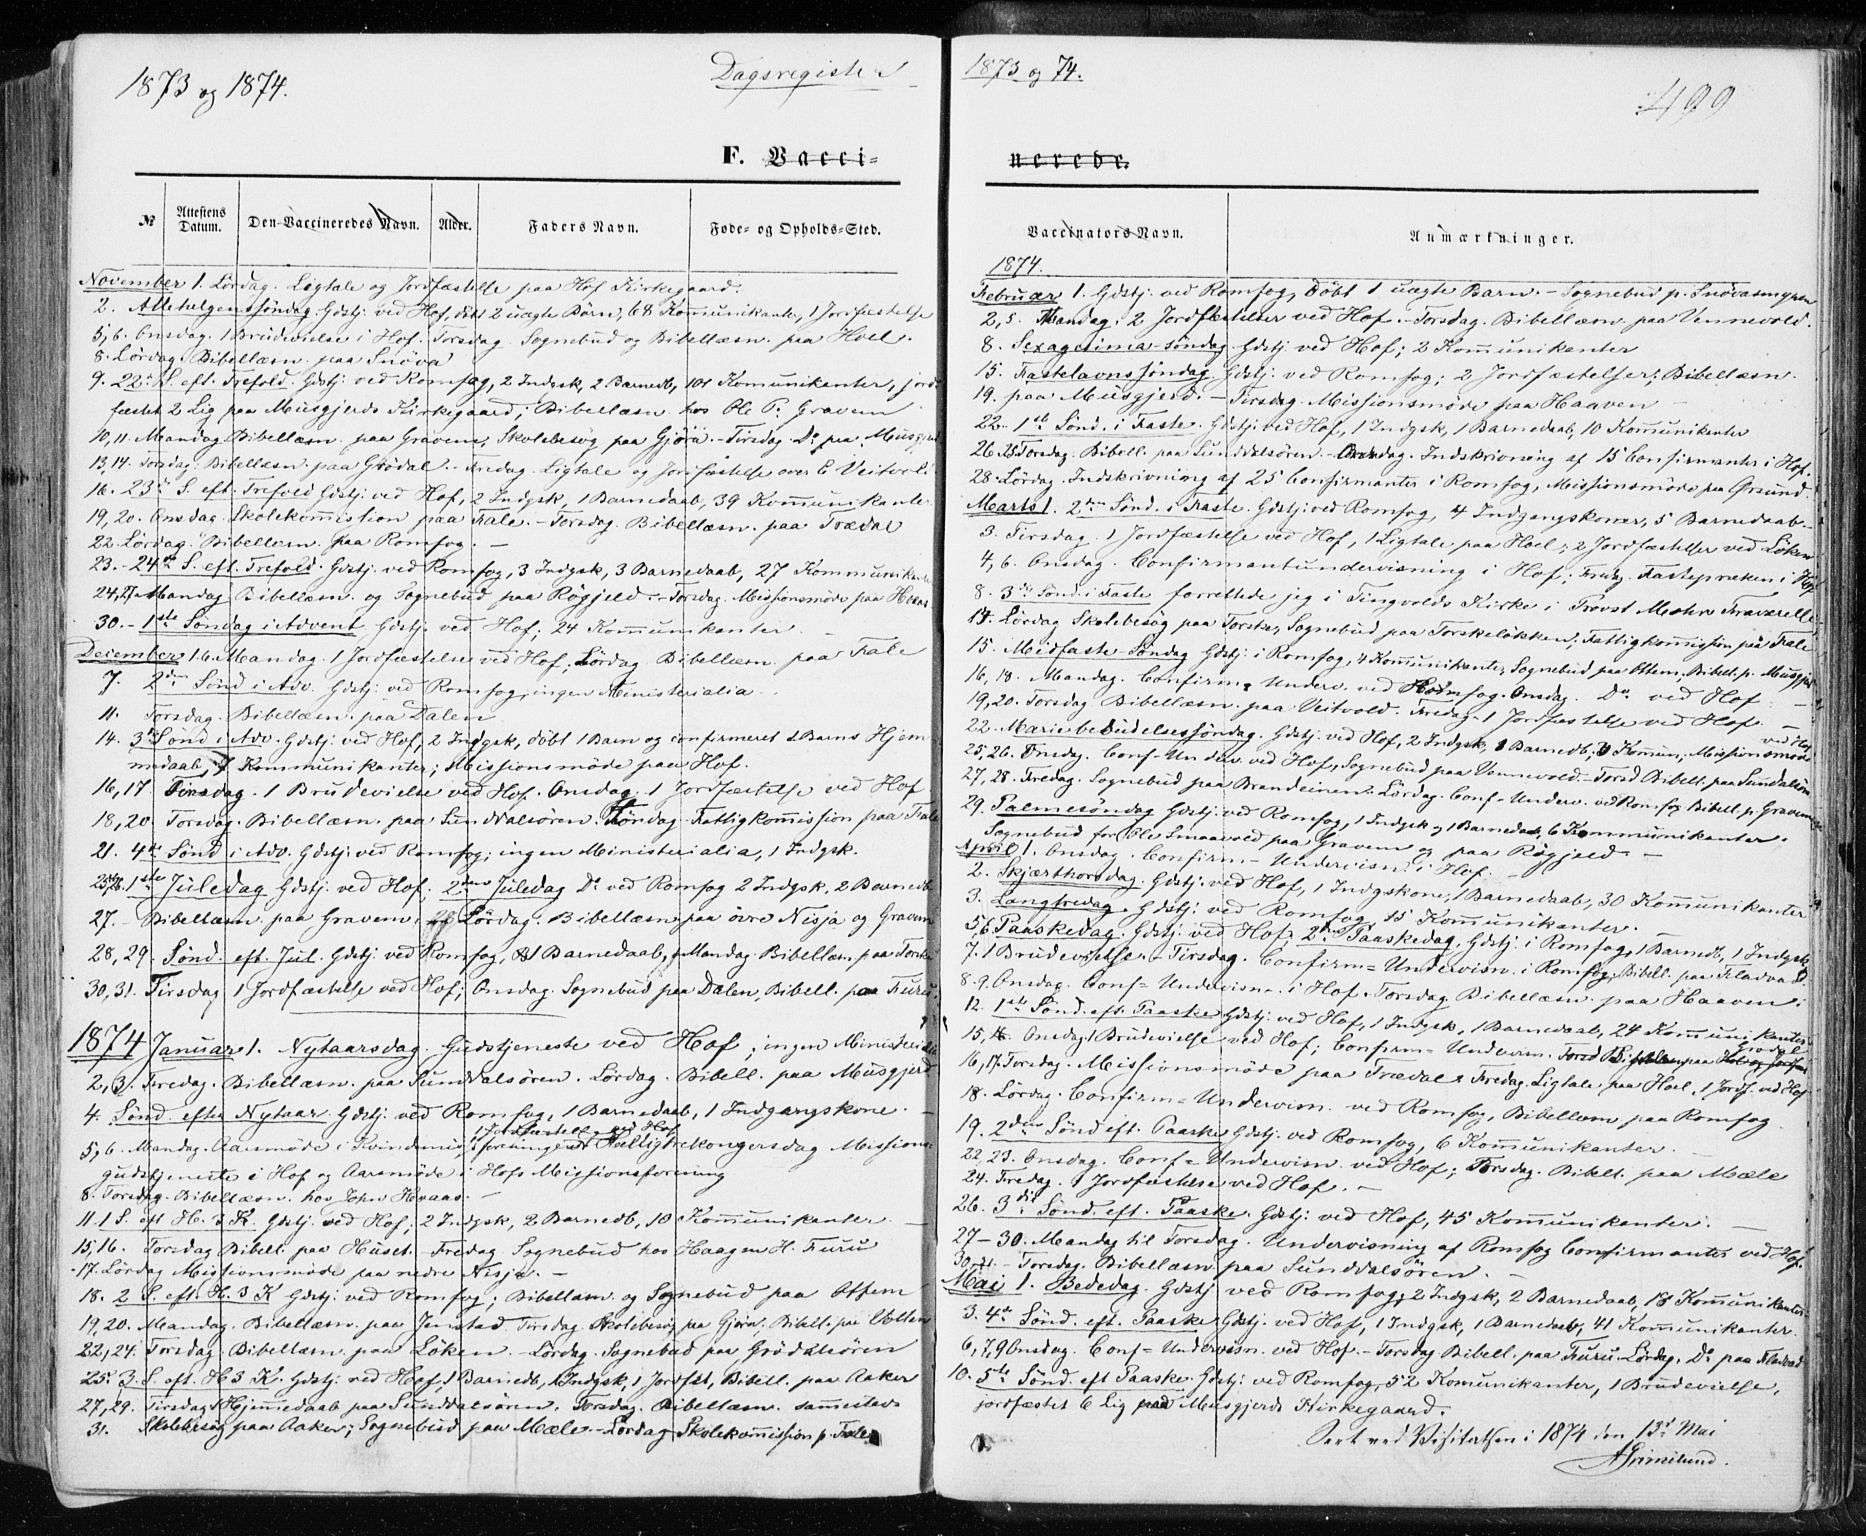 1873 og 1874.
Dagsregister
F. Vacci-
№
Attestens Datum.
Den Vaccineredes Navn.
Alder.
Faders Navn.
Føde- og Opholds-Sted.
November 1. Lördag. Ligtale og Jordfæstelse paa Hof Kirkegaard.
2. Allehelgenssöndag Gdstj. ved Hof, döbt 2 uægte Börn, 68 Komunikanter, 1 Jordfæstelse
5,6. Onsdag. 1 Brudevielse i Hof. Torsdag. Sognebud og Bibellæsn. paa Hoel.
8. Lördag. Bibellæsn. paa Snöva
9. 22de S. eft. Trefold. Gdstj. ved Romfog, 2 Indgsk, 2 Barnedb, 101 Komunikanter, jord-
fæstet 2 Lig paa Musgjerds Kirkegaard; Bibellæsn. hos Ole P. Gravem
10,11. Mandag. Bibellæsn. paa Gravem; Skolebesög paa Gjöra. - Tirsdag Do paa Musgjerd
13,14. Torsdag. Bibellæsn. paa Grödal. - Fredag. Ligtale og Jordfæstelse over E Veitvold
16. 23de S. eft. Trefold Gdstj. ved Hof, 2 Indgsk, 1 Barnedaab, 39 Komunikanter
19,20. Onsdag. Skolekomission paa Fale. - Torsdag. Bibellæsn. paa Trædal
22. Lördag. Bibellæsn. paa Romfog. -
23. - 24de S. eft. Trefold. Gdstj. ved Romfog, 3 Indgsk, 3 Barnedaab, 27 Kommunikanter
24,27. Mandag Bibellæsn. og Sognebud paa Rögjeld. - Torsdag. Missionsmöde paa Hvaas
30. - 1ste Söndag i Advent Gdstj. ved Hof; 24 Komunikanter. -
December 1.6. Mandag. 1 Jordfæstelse ved Hof; Lördag Bibellæsn. paa Fale
7. 2den Sönd i Adv. Gdstj. ved Romfog; ingen Ministerialia.
11. Torsdag. Bibellæsn. paa Dalen
14. 3de Sönd i Adv. Gdstj. ved Hof, 2 Indgsk, döbt 1 Barn og confirmeret 1 Barns Hjem-
medaab, 7 Kommunikanter; Missionsmöde paa Hof.
16,17 Tirsdag. 1 Brudevielse ved Hof. Onsdag. 1 Jordfæstelse ved Hof
18,20 Torsdag. Bibellæsn. paa Sunddalsören. Lördag Fattigkomission paa Fale
21. 4de Sönd i Adv. Gdstj. ved Romfog; ingen Ministerialia, 1 Indgsk.
25,26. 1ste Juledag Gdstj. ved Hof. 2den Juledag Do ved Romfog 2 Indgsk, 2 Barnedb.
27. - Bibellæsn. paa Gravem, Lördag. Bibellæsn. paa övre Nisja og Gravem
28,29. Sönd. eft. Jul. Gdstj. ved Romfog, 1 Barnedaab, Mandag. Bibellæsn. paa Torske
30,31. Tirsdag 1 Jordfæstelse ved Hof; Onsdag. Sognebud paa Dalen, Bibell. paa Furu.
1874 Januar 1. Nytaarsdag. Gudstjeneste ved Hof; ingen Ministerialia
2,3. Fredag. Bibellæsn. paa Sunddalsören. Lördag. Bibell. paa Musgjerd
4. Sönd. efter Nytaar. Gdstj. ved Romfog, 1 Barnedaab, 1 Indgangskone. -
1 Jordfæstelse ved Hof
5,6. Mandag. Aarsmöde i Kvindeforening. Helligtrekongersdag Missions-
gudstjeneste i Hof og Aarsmöde i Hofs Missionsforening
8. Torsdag. Bibellæsn. hos John Hvaas. -
11. 1 S. eft H. 3 K. Gdstj. ved Hof; 2 Indgsk, 2 Barnedb, 10 Komunikanter. -
15,16. Torsdag Bibell. paa Huset. - Fredag Sognebud hos Haagen H. Furu
17. Lördag Missionsmöde paa nedre Nisja. -
18. 2 S. eft. H. 3 K Gdstj. ved Romfog; Bibellæsn. og Sognebud paa Ottem
19,20. Mandag. Bibellæsn. paa Jenstad. Tirsdag. Skolebesög paa Gjöra, Bibell. paa Volten
22,24. Torsdag Bibellæsn. paa Löken. - Lördag. Sognebud paa Grödalsören
25. 3. S. eft. H. 3 K. Gdstj. ved Hof, 1 Barnedb, 1 Indgsk, 1 Jordfst, Bibell. paa Aaker
27,29. Tirsdag 1 Hjemmedaab paa Sunddalsören. Torsdag. Bibellæsn. sammesteds
31. Skolebesög paa Aaker; Sognebud paa Mæle. - Lördag Skolekomission p. Fale
1873 og 74.
499
nerede.
Vaccinators Navn.
Anmærkninger.
1874.
Februar 1. Gdstj. ved Romfog, döbt 1 uægte Barn. - Sognebud p. Snövasmyren
2,5. Mandag. 2 Jordfæstelser ved Hof. - Torsdag. Bibellæsn. paa Vennevold.
8. Sexagesima-söndag. Gdstj. ved Hof; 2 Komunikanter
15. Fastelavnssöndag. Gdstj. ved Romfog; 2 Jordfæstelser; Bibellæsn.
19. paa Musgjerd. - Tirsdag. Missionsmöde paa Haaven
22. 1ste Sönd. i Faste. Gdstj. ved Hof, 1 Indgsk, 1 Barnedaab, 10 Komunikanter
26. Torsdag. Bibell. paa Sunddalsören. - Indskrivning af 15 Confirmanter i Hof.
28. Lördag. Indskrivning af 25 Confirmanter i Romfog, Missionsmöde paa Grsund
Marts 1. 2den Sönd. i Faste. Gdstj. ved Romfog, 4 Indgangskoner, 5 Barnedaab. -
3. Tirsdag. 1 Jordfæstelse ved Hof, 1 Ligtale paa Hoel; 2 Jordfæstelser ved Löken
4,6. Onsdag. Confirmantundervisning i Hof; Fredag. Fasteprækeni i Hof
8. 3die Sönd. i Faste forrettede jeg i Tingvolds Kirke i Provst Mohrs Fraværelse
14. Lördag Skolebesög paa Torske, Sognebud paa Torskelökken; Fattigkomission paa Fale
15. Midfaste-Söndag Gdstj. i Romfog, 4 Komunikanter, Sognebud paa Ottem, Bibell. p. Musgjerd
16,18. Mandag. Confirm. Underv. ved Romfog. Onsdag. Do ved Hof
19,20. Torsdag Bibellæsn. paa Veitvold. Fredag. 1 Jordfæstelse ved Hof. -
22. Mariæ bebudelsessöndag. Gdstj. ved Hof, 2 Indgsk, 1 Barnedb, Komun., Missionsmöde ved Hof
25,26. Onsdag. Conf-Underv. ved Hof, Sognebud paa Vennevold. - Torsd Bibell. paa Sundalsören
27,28. Fredag. Sognebud paa Brandeinen. Lördag. Conf-Underv. ved Romfog Bibell. p. Gravem
29. Palmesöndag Gdstj. ved Romfog, 1 Indgsk, 1 Barnedaab, 6 Kommunikanter.
Sognebud for Ole Smaavold paa Gravem og paa Rögjeld. -
April 1. Onsdag. Confirm-Undervisn. i Hof. -
2. Skjærthorsdag. Gdstj. ved Hof, 1 Indgskone, 1 Barnedaab, 30 Kommunikanter
3. Langfredag. Gdstj. ved Romfog, 15 Komunikanter.
5,6 Paaskedag. Gdstj. ved Hof. 2den Paaskedag. Gdstj. i Romfog, 1 Barnedb, 1 Indgsk
7. 1 Brudevielse. - Tirsdag. Confirm=Undervisn. i Romfog, Bibell. paa Fladvad
8.9. Onsdag. Conf=Undervisn. i Hof. Torsdag Bibellæsn. paa Haaven
12. 1ste Sönd. eft. Paaske Gdstj. ved Hof, 1 Indgsk, 1 Barnedaab, 24 Komunikanter
15, Onsdag, 1 Brudevielse ved Hof; Confirm-Undervisn.
16,17. Torsdag. Missionsmöde paa Trædal. Fredag. Ligtale paa Hoel, 1 Jordf. ved Hof
18. Lördag. Confirm=Undervisn. ved Romfog, Bibellæsn. paa Romfog
19. 2den Sönd eft. Paaske Gdstj. ved Romfog, 6 Komunikanter.
22.23. Onsdag. Conf-Undervisn. ved Hof; Torsdag. Bibell. paa Mæle
24. Fredag. 1 Jordfæstelse ved Hof. -
26. 3die Sönd. eft. Paaske. Gdstj. ved Hof, 45 Komunikanter. -
27-30. Mandag til Torsdag. Undervisning af Romfog Confirmanter ved Hof.
30. - Torsdag. Bibellæsn. paa Sunddalsören. -
Mai 1. Bededag. Gdstj. ved Romfog, 2 Indgsk, 2 Barnedaab, 18 Komunikanter
3. 4de Sönd. eft. Paaske Gdstj. ved Hof, 1 Indgsk, 1 Barnedaab, 41 Komunikanter.
6,7,9 Onsdag. Conf-Undervisn. ved Hof. - Torsdag Bibell. paa Furu. Lördag. Do paa Fladvad
10. 5te Sönd. eft Paaske. Gdstj. ved Romfog, 52 Komunikanter, 1 Brudevielse,
jordfæstet 6 Lig Musgjerds Kirkegaard.
Seet ved Visitatsen i 1874 den 13de Mai
AGrimelund.